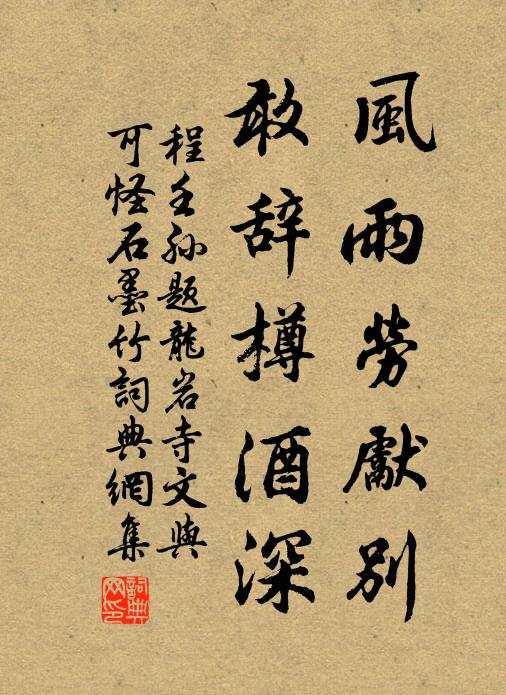 風雨勞獻別
敢辞樽酒深
程壬孫題龍岩寺文與
可怪石墨竹詞典網集
詞典
网印